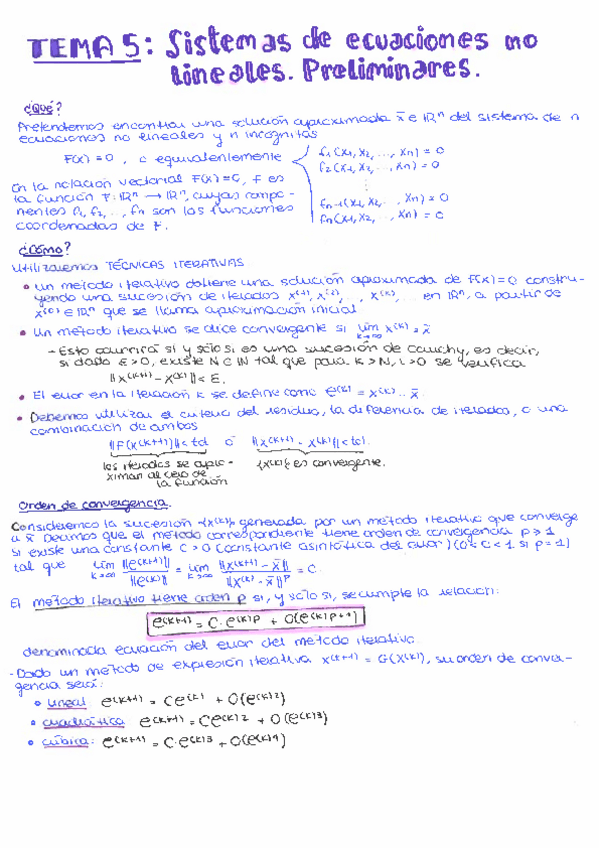 TEMA 5: Sistemas de ecuaciones no
lineales. Preliminares.
¿Qué?
Pretendemos encontrar una solución aproximada x̄ ∈ ℝⁿ del sistema de n
ecuaciones no lineales y n incógnitas
F(x) = 0, o equivalentemente
f₁(x₁, x₂, ..., xₙ) = 0
f₂(x₁, x₂, ..., xₙ) = 0
⋮
fₙ₋₁(x₁, x₂, ..., xₙ) = 0
fₙ(x₁, x₂, ..., xₙ) = 0
En la notación vectorial F(x) = 0, F es
la función F: ℝⁿ → ℝⁿ, cuyas compo-
nentes f₁, f₂, ..., fₙ son las funciones
coordenadas de F.
¿Cómo?
Utilizaremos TÉCNICAS ITERATIVAS
• Un método iterativo obtiene una solución aproximada de F(x) = 0 constru-
yendo una sucesión de iterados x⁽¹⁾, x⁽²⁾, ..., x⁽ᵏ⁾, ... en ℝⁿ, a partir de
x⁽⁰⁾ ∈ ℝⁿ que se llama aproximación inicial
• Un método iterativo se dice convergente si lim k→∞ x⁽ᵏ⁾ = x̄
- Esto ocurrirá si y sólo si es una sucesión de Cauchy, es decir,
si dado ε > 0, existe N ∈ ℕ tal que para k > N, i > 0 se verifica
||x⁽ᵏ⁺ⁱ⁾ - x⁽ᵏ⁾|| < ε.
• El error en la iteración k se define como e⁽ᵏ⁾ = x⁽ᵏ⁾ - x̄
• Debemos utilizar el criterio del residuo, la diferencia de iterados, o una
combinación de ambos
||F(x⁽ᵏ⁺¹⁾)|| < tol o ||x⁽ᵏ⁺¹⁾ - x⁽ᵏ⁾|| < tol.
los iterados se apro-
ximan al cero de
la función
{x⁽ᵏ⁾} es convergente.
Orden de convergencia.
Consideremos la sucesión {x⁽ᵏ⁾} generada por un método iterativo que converge
a x̄. Decimos que el método correspondiente tiene orden de convergencia p ≥ 1
si existe una constante C > 0 (constante asintótica del error) (0 < C < 1 si p = 1)
tal que lim k→∞ ||e⁽ᵏ⁺¹⁾|| / ||e⁽ᵏ⁾||ᵖ = lim k→∞ ||x⁽ᵏ⁺¹⁾ - x̄|| / ||x⁽ᵏ⁾ - x̄||ᵖ = C
El método iterativo tiene orden p si, y sólo si, se cumple la relación:
e⁽ᵏ⁺¹⁾ = C · e⁽ᵏ⁾ᵖ + O(e⁽ᵏ⁾ᵖ⁺¹)
denominada ecuación del error del método iterativo.
- Dado un método de expresión iterativa x⁽ᵏ⁺¹⁾ = G(x⁽ᵏ⁾), su orden de conver-
gencia será:
• lineal: e⁽ᵏ⁺¹⁾ = Ce⁽ᵏ⁾ + O(e⁽ᵏ⁾²)
• cuadrática: e⁽ᵏ⁺¹⁾ = Ce⁽ᵏ⁾² + O(e⁽ᵏ⁾³)
• cúbica: e⁽ᵏ⁺¹⁾ = C·e⁽ᵏ⁾³ + O(e⁽ᵏ⁾⁴)